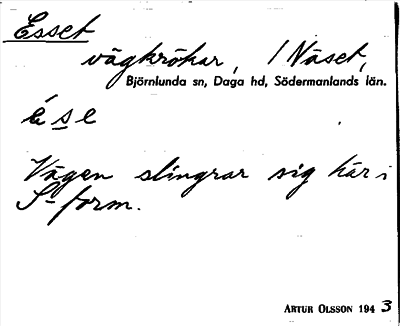 Esset
vägkrökar, / Näset,
Björnlunda sn, Daga hd, Södermanlands län.
é s e
Vägen slingrar sig här i
S-form.
ARTUR OLSSON 1943